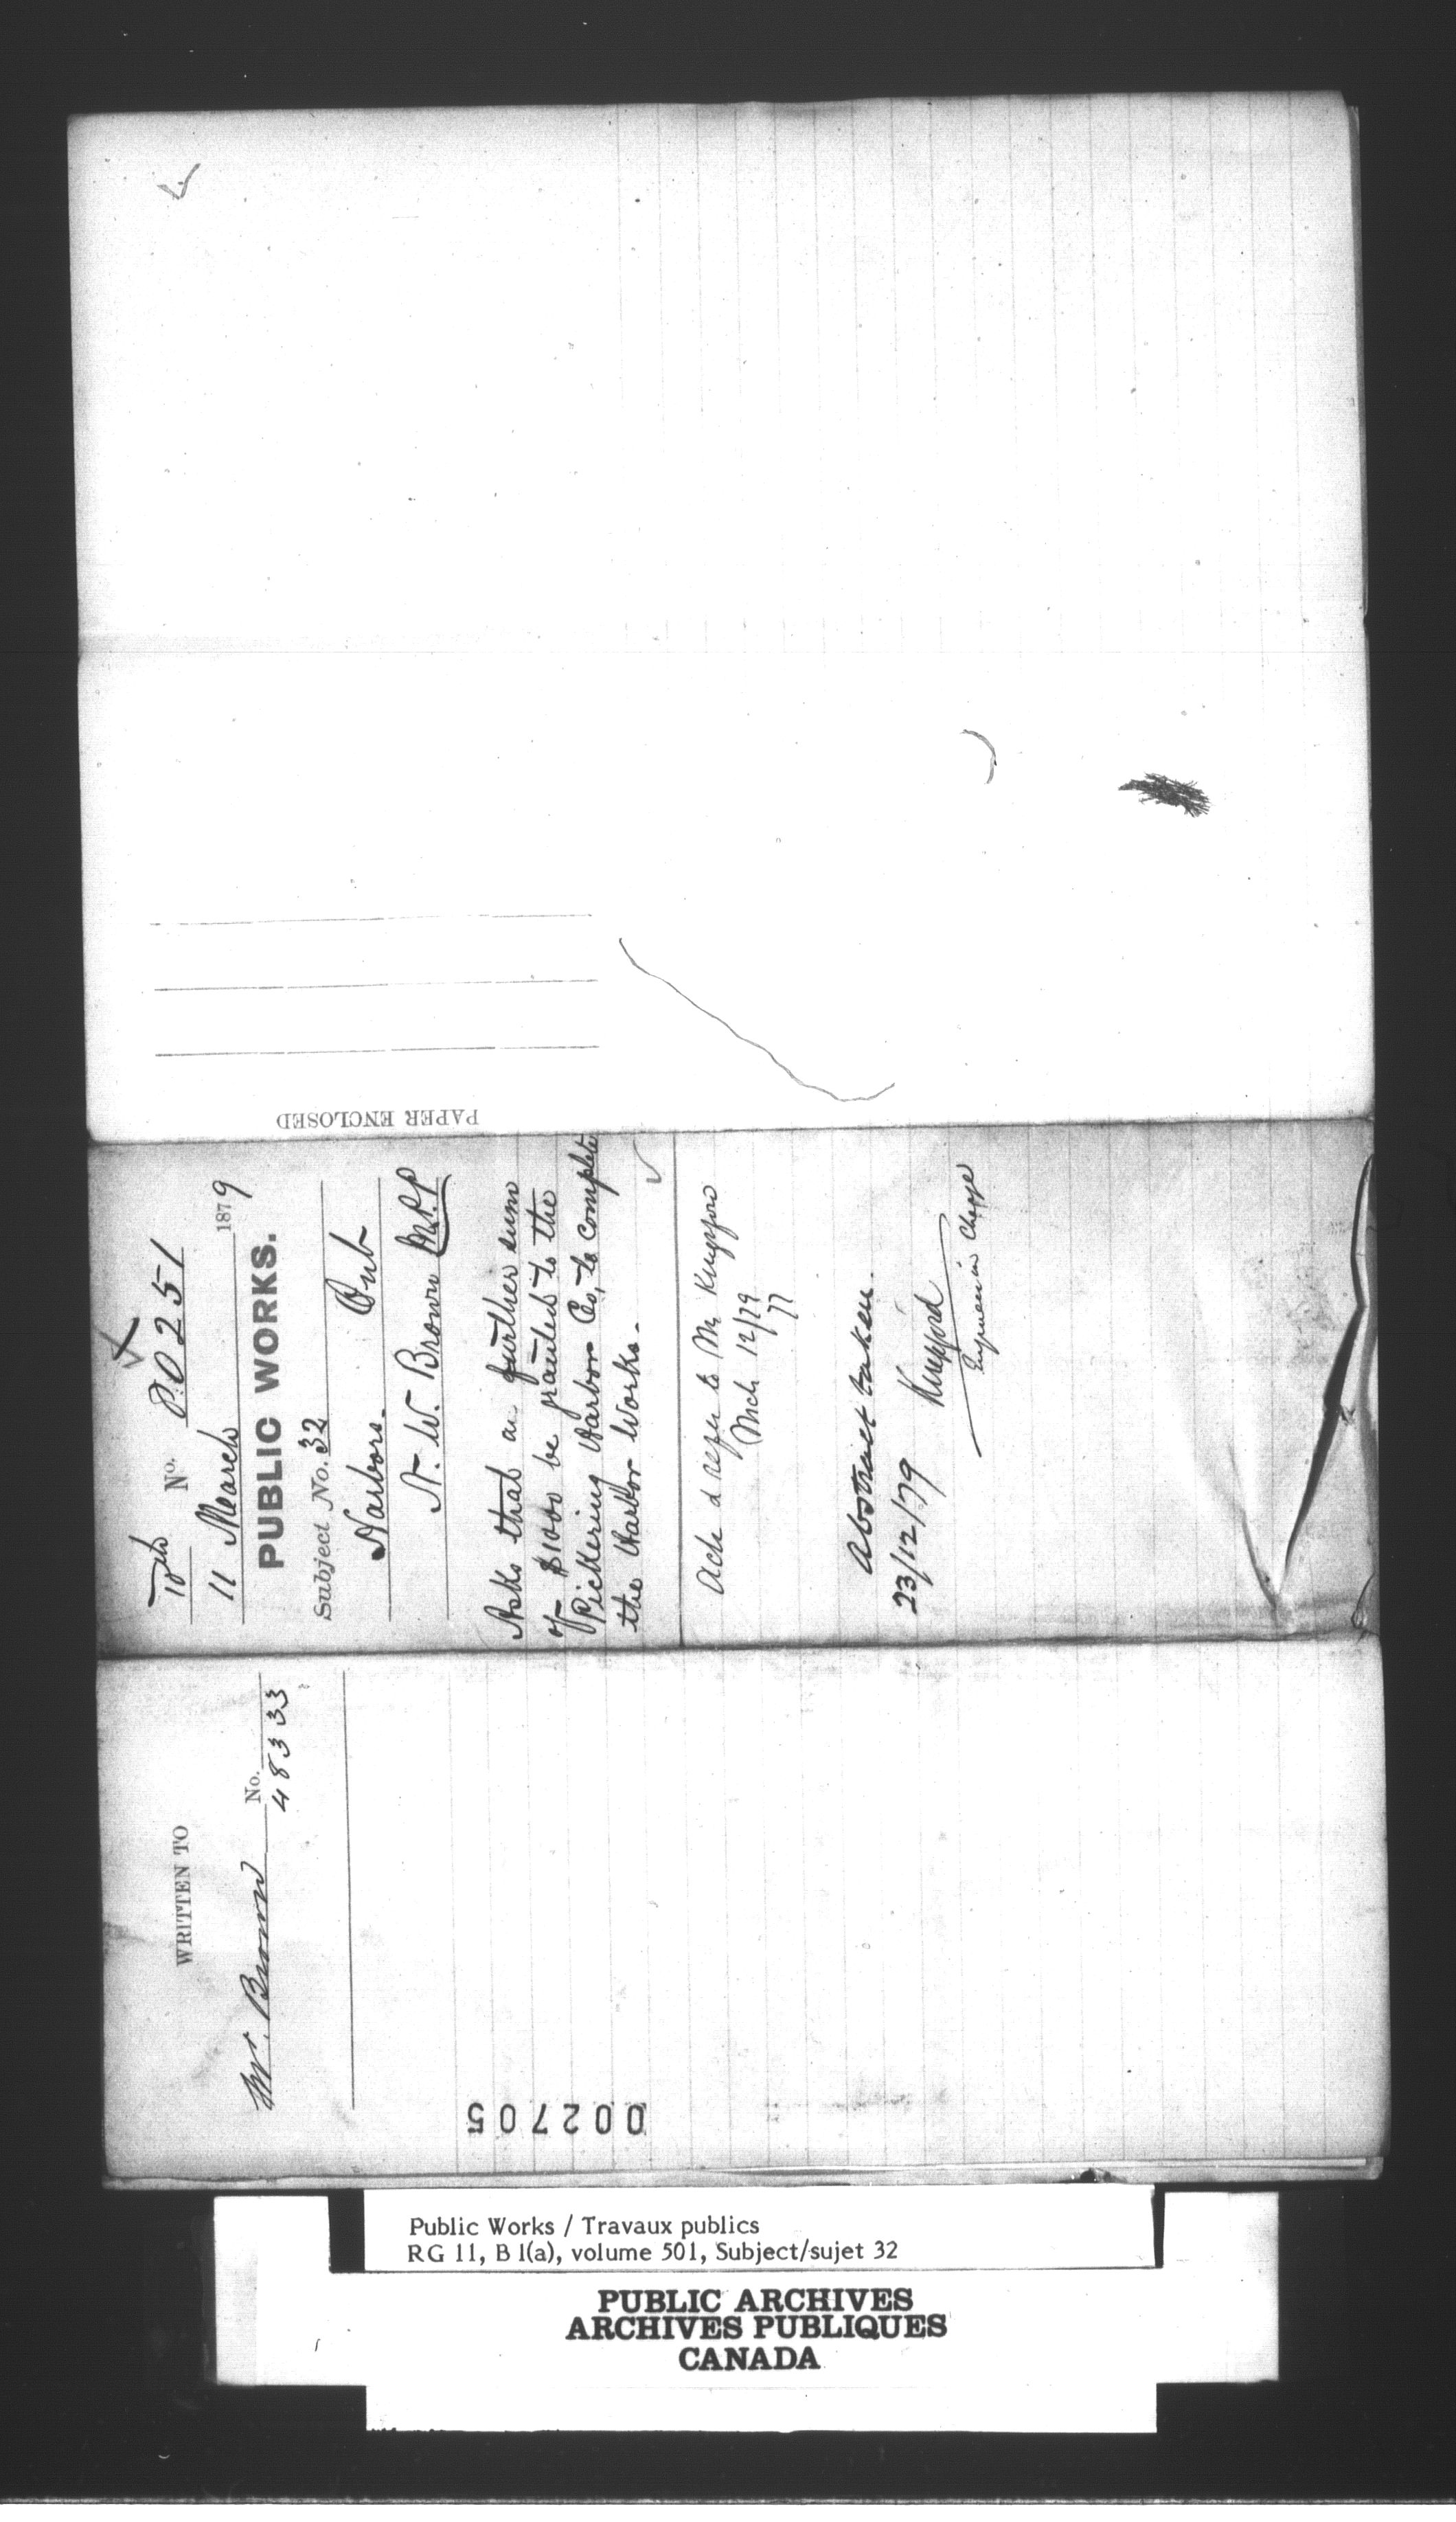 PAPER ENCLOSED
No. 80251
11 March 1879
PUBLIC WORKS.
Subject No. 32
Harbors. Ont
W. Brown M.P.P
Asks that a further sum
of $1000 be granted to the
Pickering Harbor Co, to complete
the Harbor Works.
Ack & refer to Mr Kingsford
Mch 12/79
Abstract taken.
23/12/79 Kingsford
Engineer in Charge
WRITTEN TO
Mr. Brown No.
48333
002705
Public Works / Travaux publics
RG 11, B 1(a), volume 501, Subject/sujet 32
PUBLIC ARCHIVES
ARCHIVES PUBLIQUES
CANADA